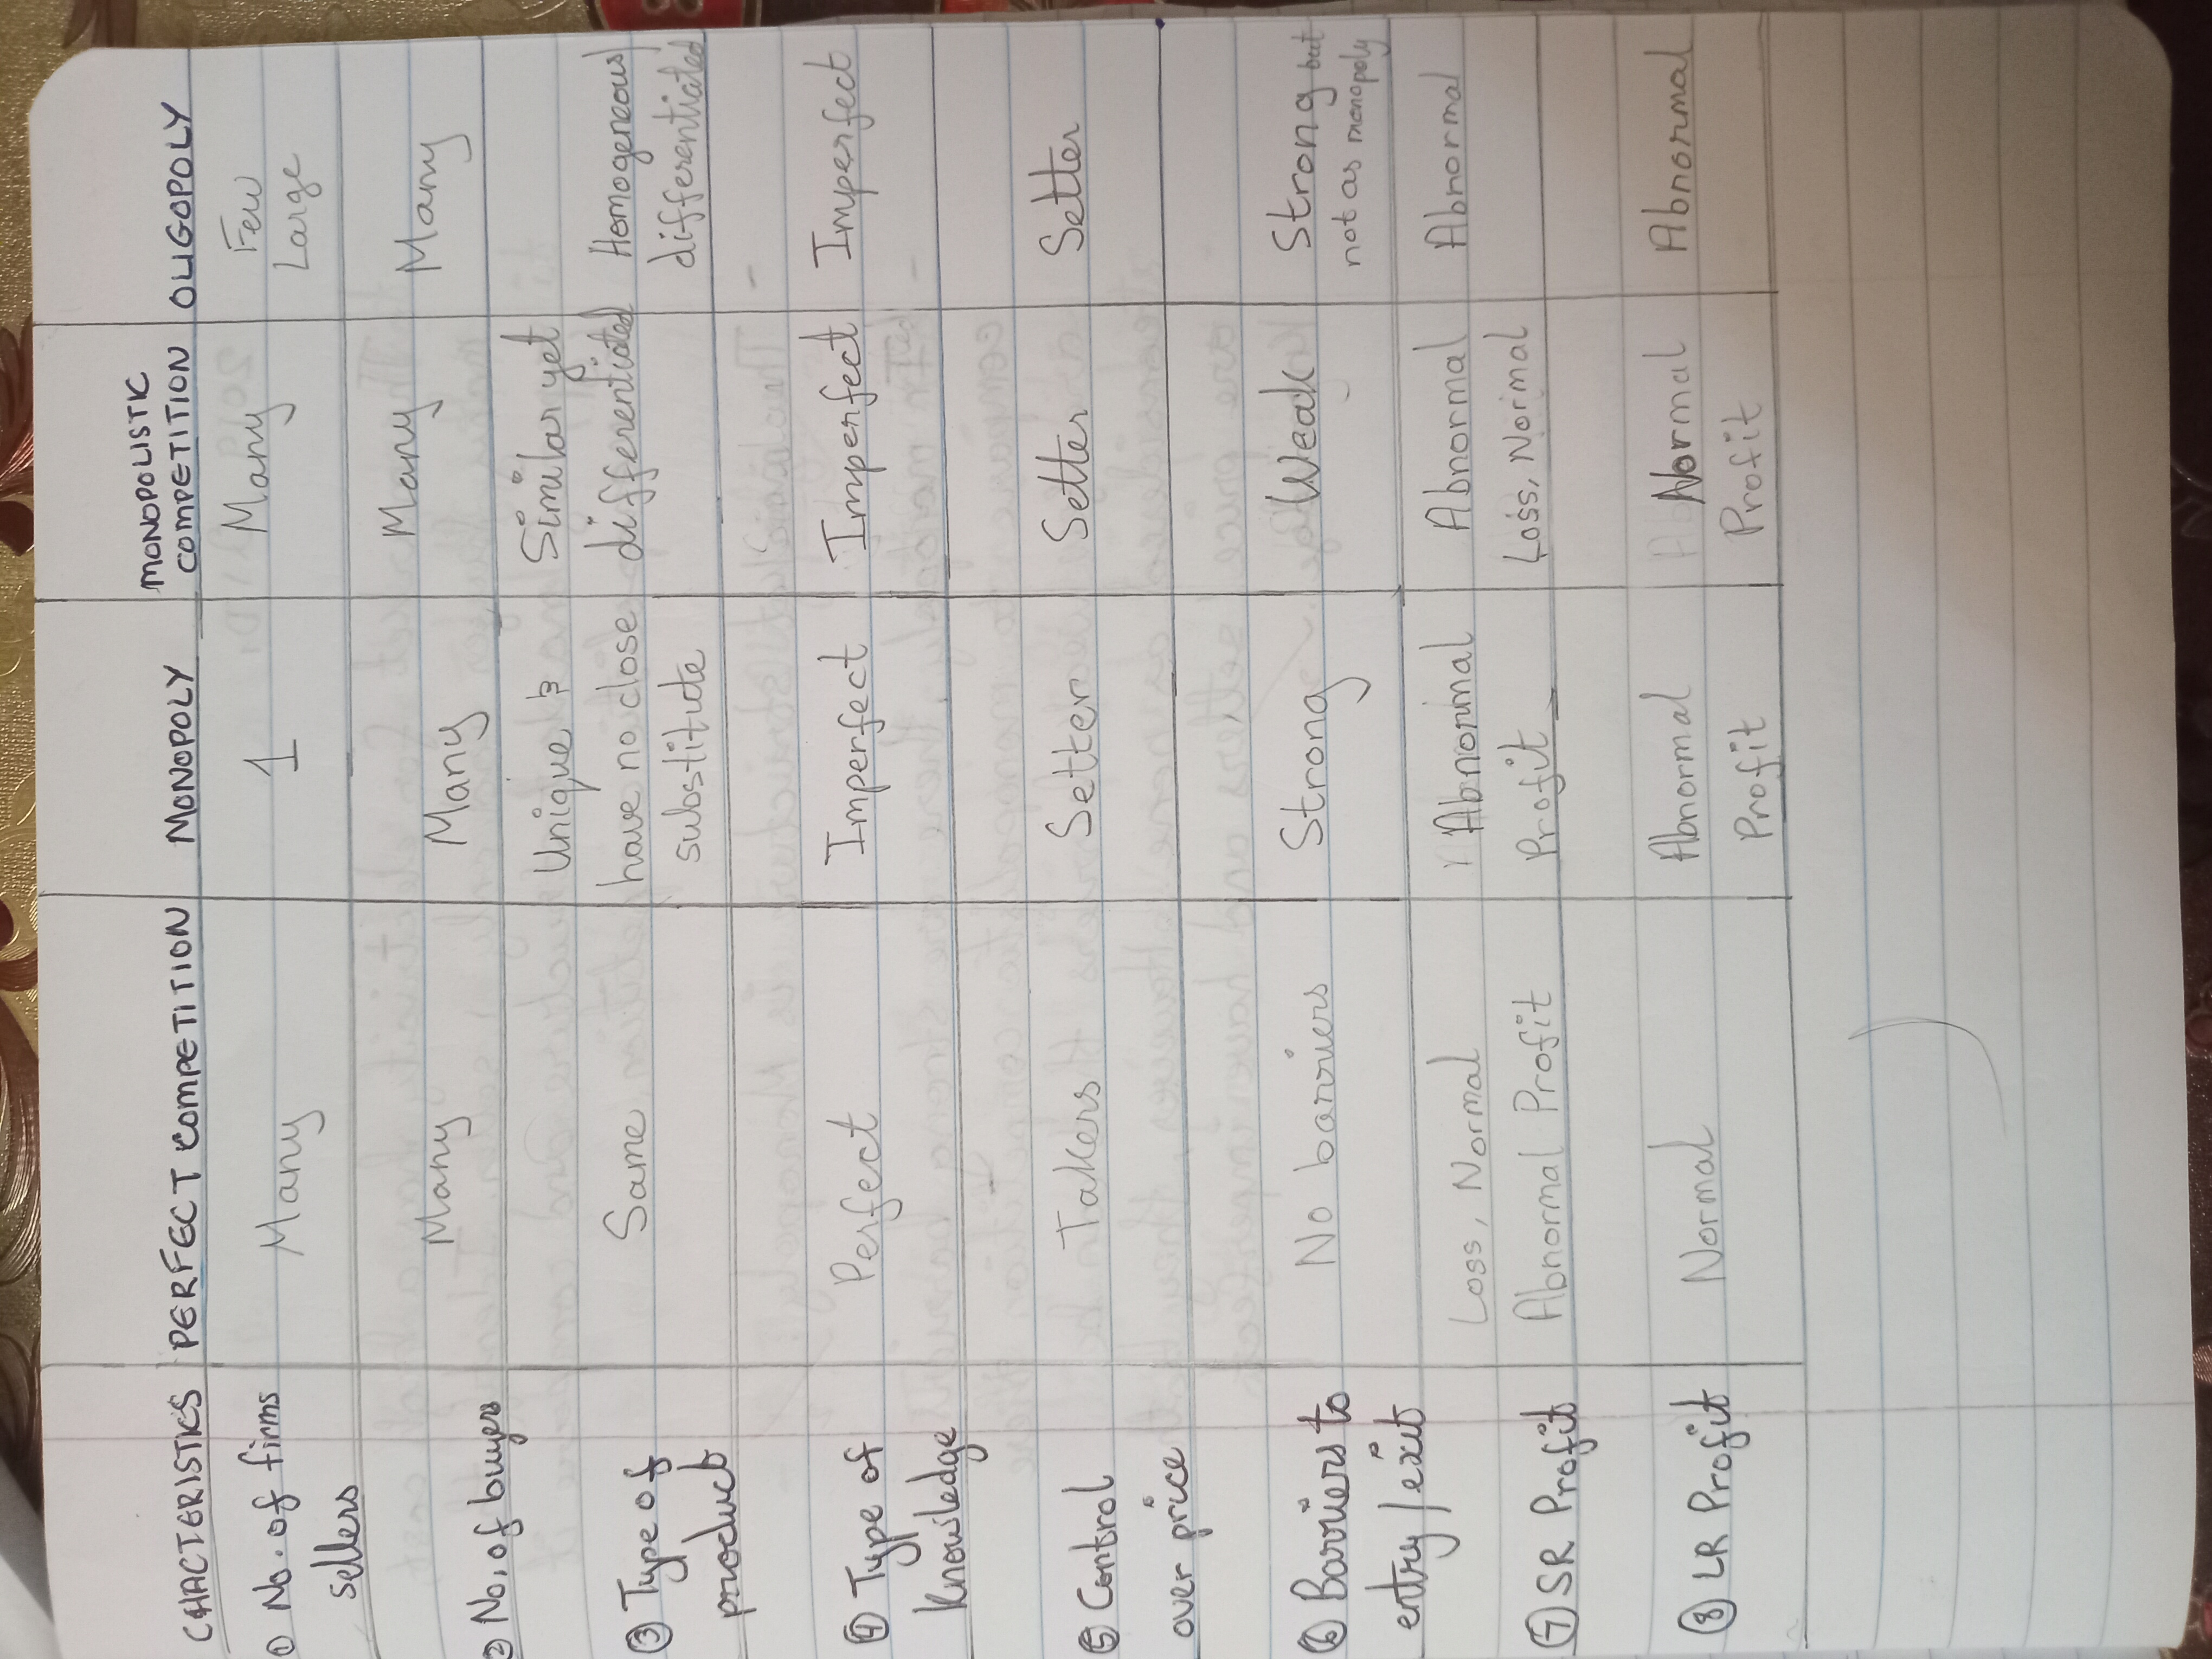 CHACTERISTICS PERFECT COMPETITION MONOPOLY MONOPOLISTIC COMPETITION OLIGOPOLY
① No. of firms sellers Many 1 Many Few Large
② No. of buyers Many Many Many Many
③ Type of product Same Unique & have no close substitute Similar yet differentiated Homogeneous/ differentiated
④ Type of Knowledge Perfect Imperfect Imperfect Imperfect
⑤ Control over price Takers Setter Setter Setter
⑥ Barriers to entry/exit No barriers Strong Weak Strong but not as monopoly
⑦ SR Profit Loss, Normal Abnormal Profit Abnormal Profit Abnormal Loss, Normal Abnormal
⑧ LR Profit Normal Abnormal Profit Normal Profit Abnormal